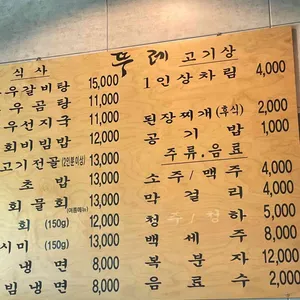 뚜레 고기상
식 사
우갈비탕 15,000
우 곰 탕 11,000
우선지국 11,000
회비빔밥 12,000
고기전골(2인분이상) 13,000
초 밥 13,000
회 물회 (여름메뉴) 13,000
회 (150g) 12,000
시미 (150g) 13,000
냉 면 8,000
빔 냉 면 8,000
1인상차림 4,000
된장찌개(후식) 2,000
공 기 밥 1,000
주류.음료
소 주 / 맥 주 4,000
막 걸 리 4,000
청 주 / 청 하 5,000
백 세 주 8,000
복 분 자 12,000
음 료 수 2,000